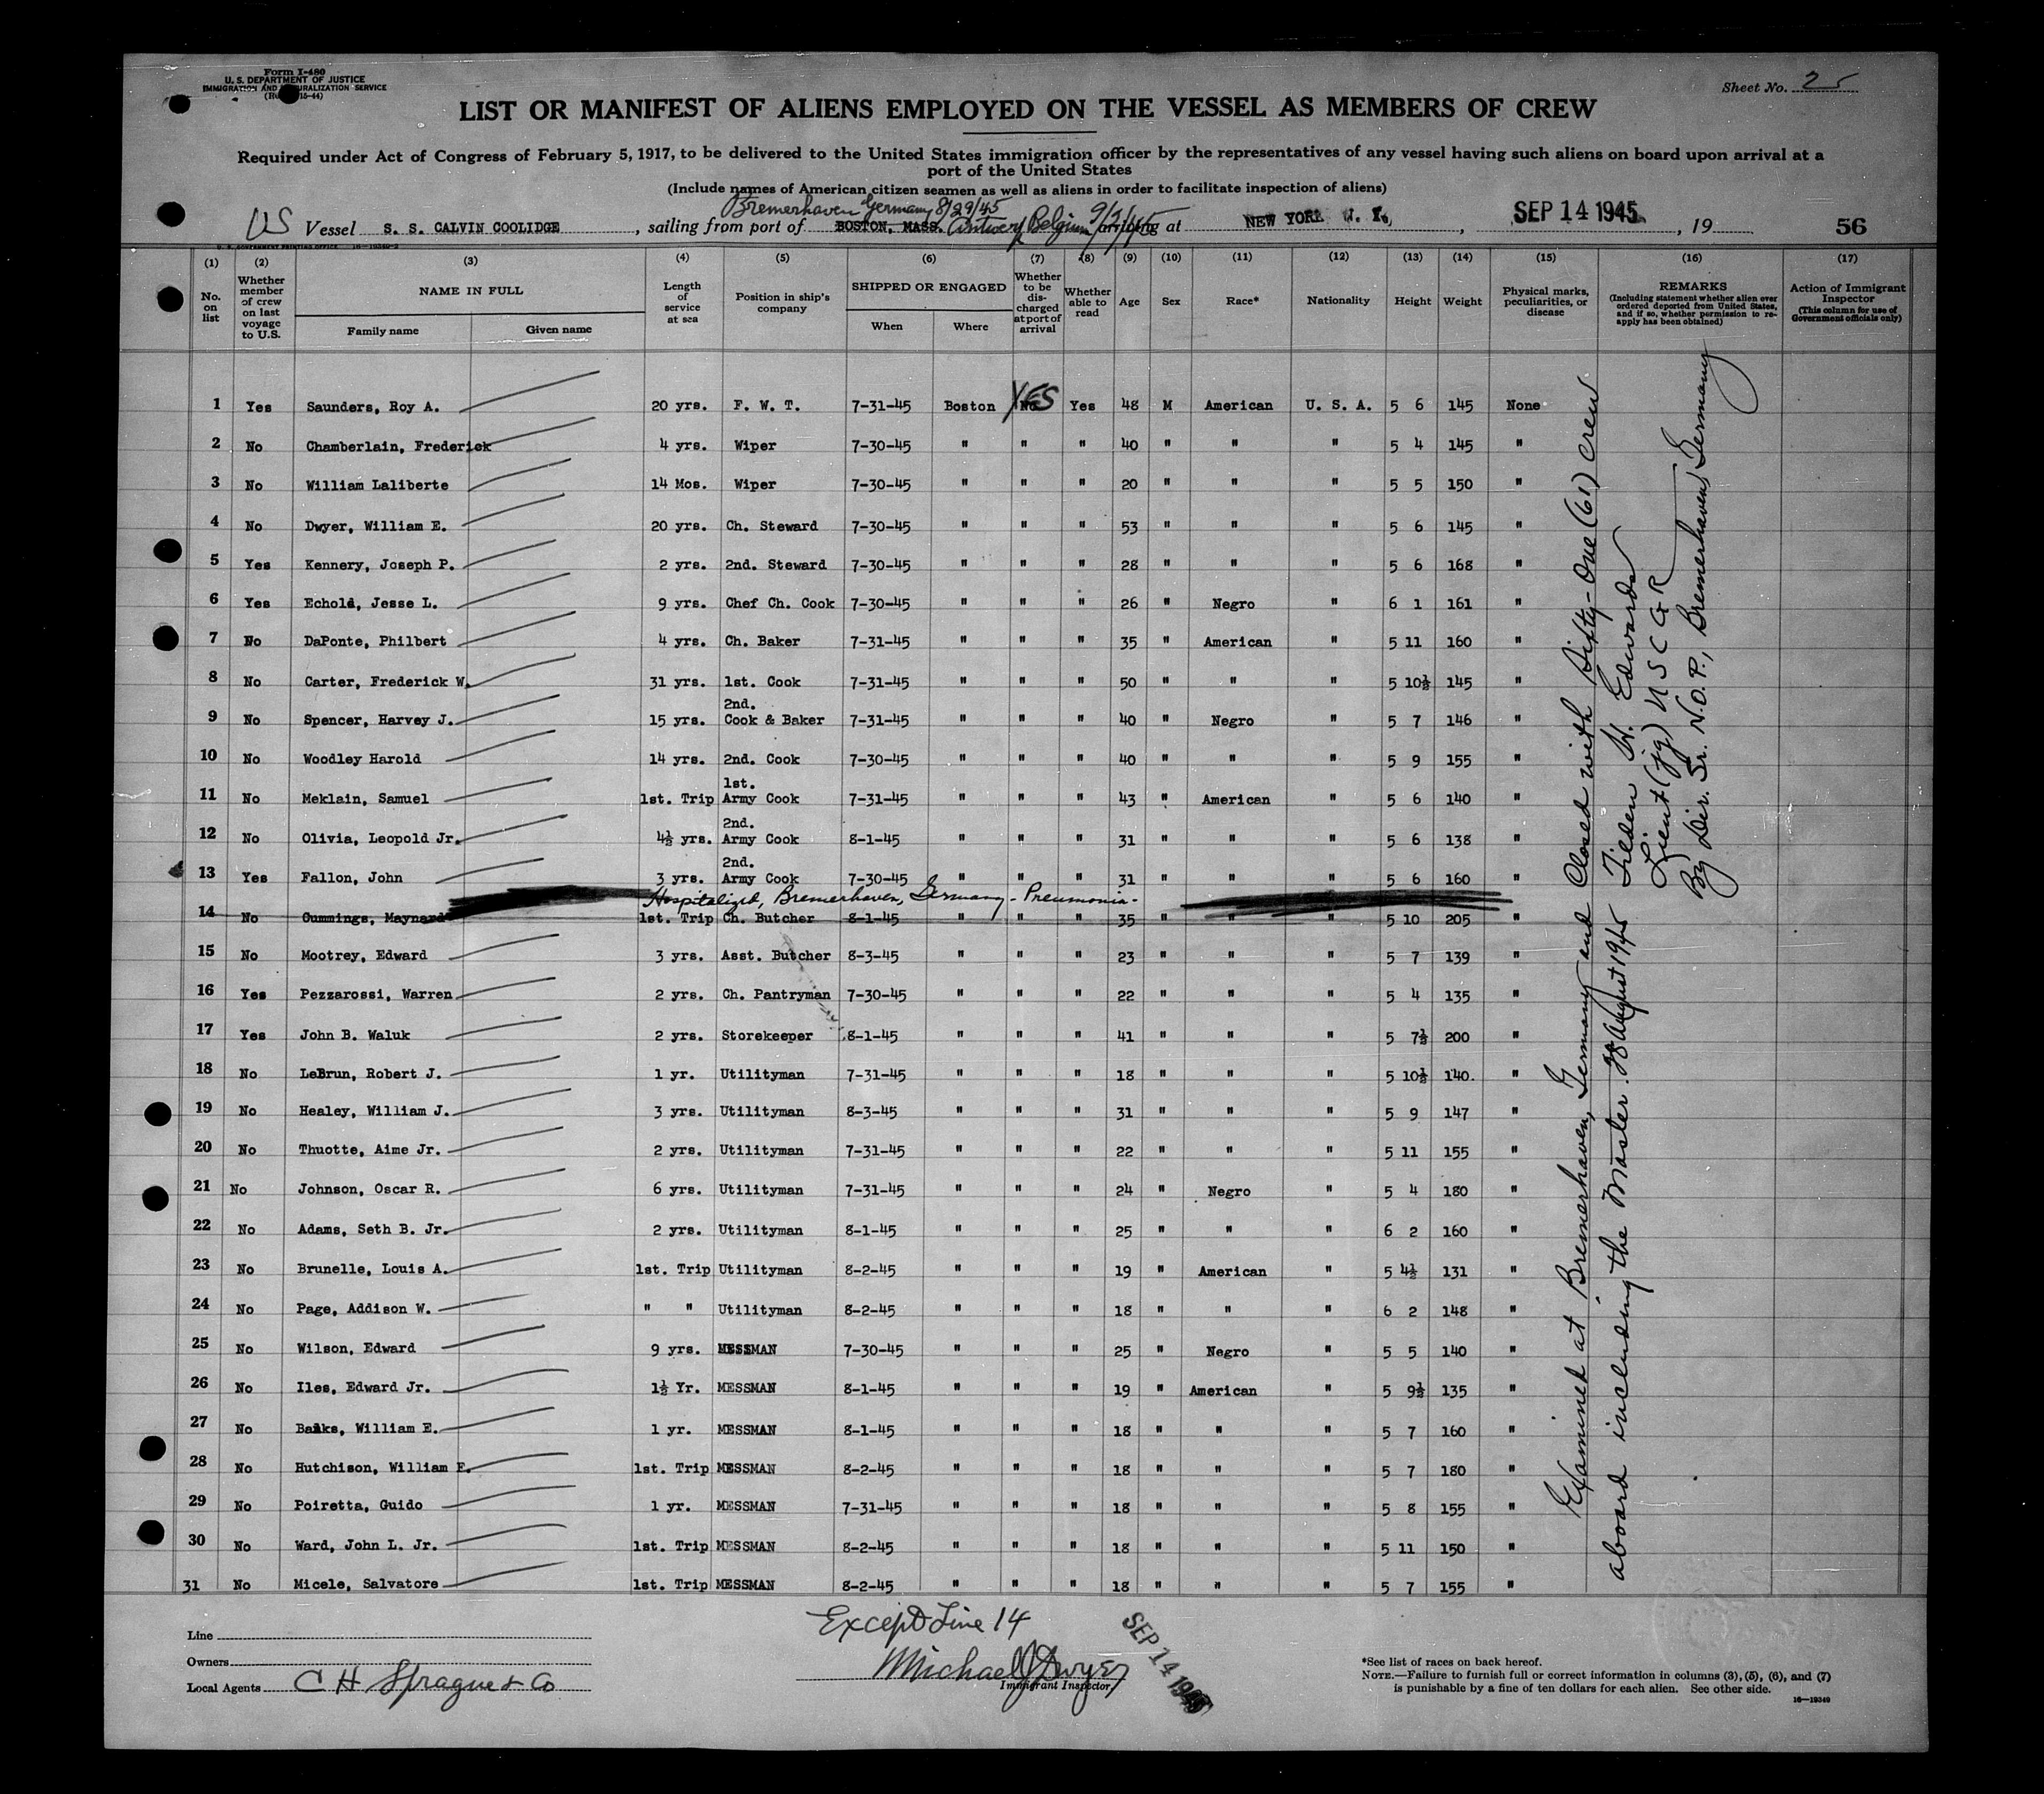 Form I-480
U. S. DEPARTMENT OF JUSTICE
IMMIGRATION AND NATURALIZATION SERVICE
15-44)
Sheet No. 2
LIST OR MANIFEST OF ALIENS EMPLOYED ON THE VESSEL AS MEMBERS OF CREW
Required under Act of Congress of February 5, 1917, to be delivered to the United States immigration officer by the representatives of any vessel having such aliens on board upon arrival at a
port of the United States
(Include names of American citizen seamen as well as aliens in order to facilitate inspection of aliens)
Bremerhaven Germany 8/29/45
US Vessel S. S. CALVIN COOLIDGE, sailing from port of BOSTON, MASS. Antwerp Belgium 9/2/45 arriving at NEW YORK N. Y., SEP 14 1945, 19 56
(1) (2) (3) (4) (5) (6) (7) (8) (9) (10) (11) (12) (13) (14) (15) (16) (17)
No. on list
Whether member of crew on last voyage to U.S.
NAME IN FULL
Family name Given name
Length of service at sea
Position in ship's company
SHIPPED OR ENGAGED
When Where
Whether to be discharged at port of arrival
Whether able to read
Age
Sex
Race*
Nationality
Height
Weight
Physical marks, peculiarities, or disease
REMARKS
(Including statement whether alien ever ordered deported from United States, and if so, whether permission to re-apply has been obtained)
Action of Immigrant Inspector
(This column for use of Government officials only)
1 Yes Saunders, Roy A. 20 yrs. F. W. T. 7-31-45 Boston No YES Yes 48 M American U. S. A. 5 6 145 None
2 No Chamberlain, Frederick 4 yrs. Wiper 7-30-45 " " " 40 " " " 5 4 145 "
3 No William Laliberte 14 Mos. Wiper 7-30-45 " " " 20 " " " 5 5 150 "
4 No Dwyer, William E. 20 yrs. Ch. Steward 7-30-45 " " " 53 " " " 5 6 145 "
5 Yes Kennery, Joseph P. 2 yrs. 2nd. Steward 7-30-45 " " " 28 " " " 5 6 168 "
6 Yes Echold, Jesse L. 9 yrs. Chef Ch. Cook 7-30-45 " " " 26 " Negro " 6 1 161 "
7 No DaPonte, Philbert 4 yrs. Ch. Baker 7-31-45 " " " 35 " American " 5 11 160 "
8 No Carter, Frederick W. 31 yrs. 1st. Cook 7-31-45 " " " 50 " " " 5 10½ 145 "
9 No Spencer, Harvey J. 15 yrs. 2nd. Cook & Baker 7-31-45 " " " 40 " Negro " 5 7 146 "
10 No Woodley Harold 14 yrs. 2nd. Cook 7-30-45 " " " 40 " " " 5 9 155 "
11 No Meklain, Samuel 1st. Trip 1st. Army Cook 7-31-45 " " " 43 " American " 5 6 140 "
12 No Olivia, Leopold Jr. 4½ yrs. 2nd. Army Cook 8-1-45 " " " 31 " " " 5 6 138 "
13 Yes Fallon, John 3 yrs. 2nd. Army Cook 7-30-45 " " " 31 " " " 5 6 160 "
Hospitalized, Bremerhaven, Germany - Pneumonia -
14 No Cummings, Maynard 1st. Trip Ch. Butcher 8-1-45 " " " 35 " " " 5 10 205 "
15 No Mootrey, Edward 3 yrs. Asst. Butcher 8-3-45 " " " 23 " " " 5 7 139 "
16 Yes Pezzarossi, Warren 2 yrs. Ch. Pantryman 7-30-45 " " " 22 " " " 5 4 135 "
17 Yes John B. Waluk 2 yrs. Storekeeper 8-1-45 " " " 41 " " " 5 7½ 200 "
18 No LeBrun, Robert J. 1 yr. Utilityman 7-31-45 " " " 18 " " " 5 10½ 140. "
19 No Healey, William J. 3 yrs. Utilityman 8-3-45 " " " 31 " " " 5 9 147 "
20 No Thuotte, Aime Jr. 2 yrs. Utilityman 7-31-45 " " " 22 " " " 5 11 155 "
21 No Johnson, Oscar R. 6 yrs. Utilityman 7-31-45 " " " 24 " Negro " 5 4 180 "
22 No Adams, Seth B. Jr. 2 yrs. Utilityman 8-1-45 " " " 25 " " " 6 2 160 "
23 No Brunelle, Louis A. 1st. Trip Utilityman 8-2-45 " " " 19 " American " 5 4½ 131 "
24 No Page, Addison W. " " Utilityman 8-2-45 " " " 18 " " " 6 2 148 "
25 No Wilson, Edward 9 yrs. MESSMAN 7-30-45 " " " 25 " Negro " 5 5 140 "
26 No Iles, Edward Jr. 1½ Yr. MESSMAN 8-1-45 " " " 19 " American " 5 9½ 135 "
27 No Banks, William E. 1 yr. MESSMAN 8-1-45 " " " 18 " " " 5 7 160 "
28 No Hutchison, William F. 1st. Trip MESSMAN 8-2-45 " " " 18 " " " 5 7 180 "
29 No Poiretta, Guido 1 yr. MESSMAN 7-31-45 " " " 18 " " " 5 8 155 "
30 No Ward, John L. Jr. 1st. Trip MESSMAN 8-2-45 " " " 18 " " " 5 11 150 "
31 No Micele, Salvatore 1st. Trip MESSMAN 8-2-45 " " " 18 " " " 5 7 155 "
Examined at Bremerhaven, Germany and Closed with Sixty-One (61) Crew
aboard including the Master. 28 August 1945
Tilden W. Edwards
Lieut (jg) USCGR
By Dir. Sr. N.O.P., Bremerhaven, Germany
Except Line 14
Line
Owners
Local Agents C H Sprague & Co
Michael J Dwyer
Immigrant Inspector
SEP 14 1945
*See list of races on back hereof.
NOTE.—Failure to furnish full or correct information in columns (3), (5), (6), and (7)
is punishable by a fine of ten dollars for each alien. See other side.
16—19349